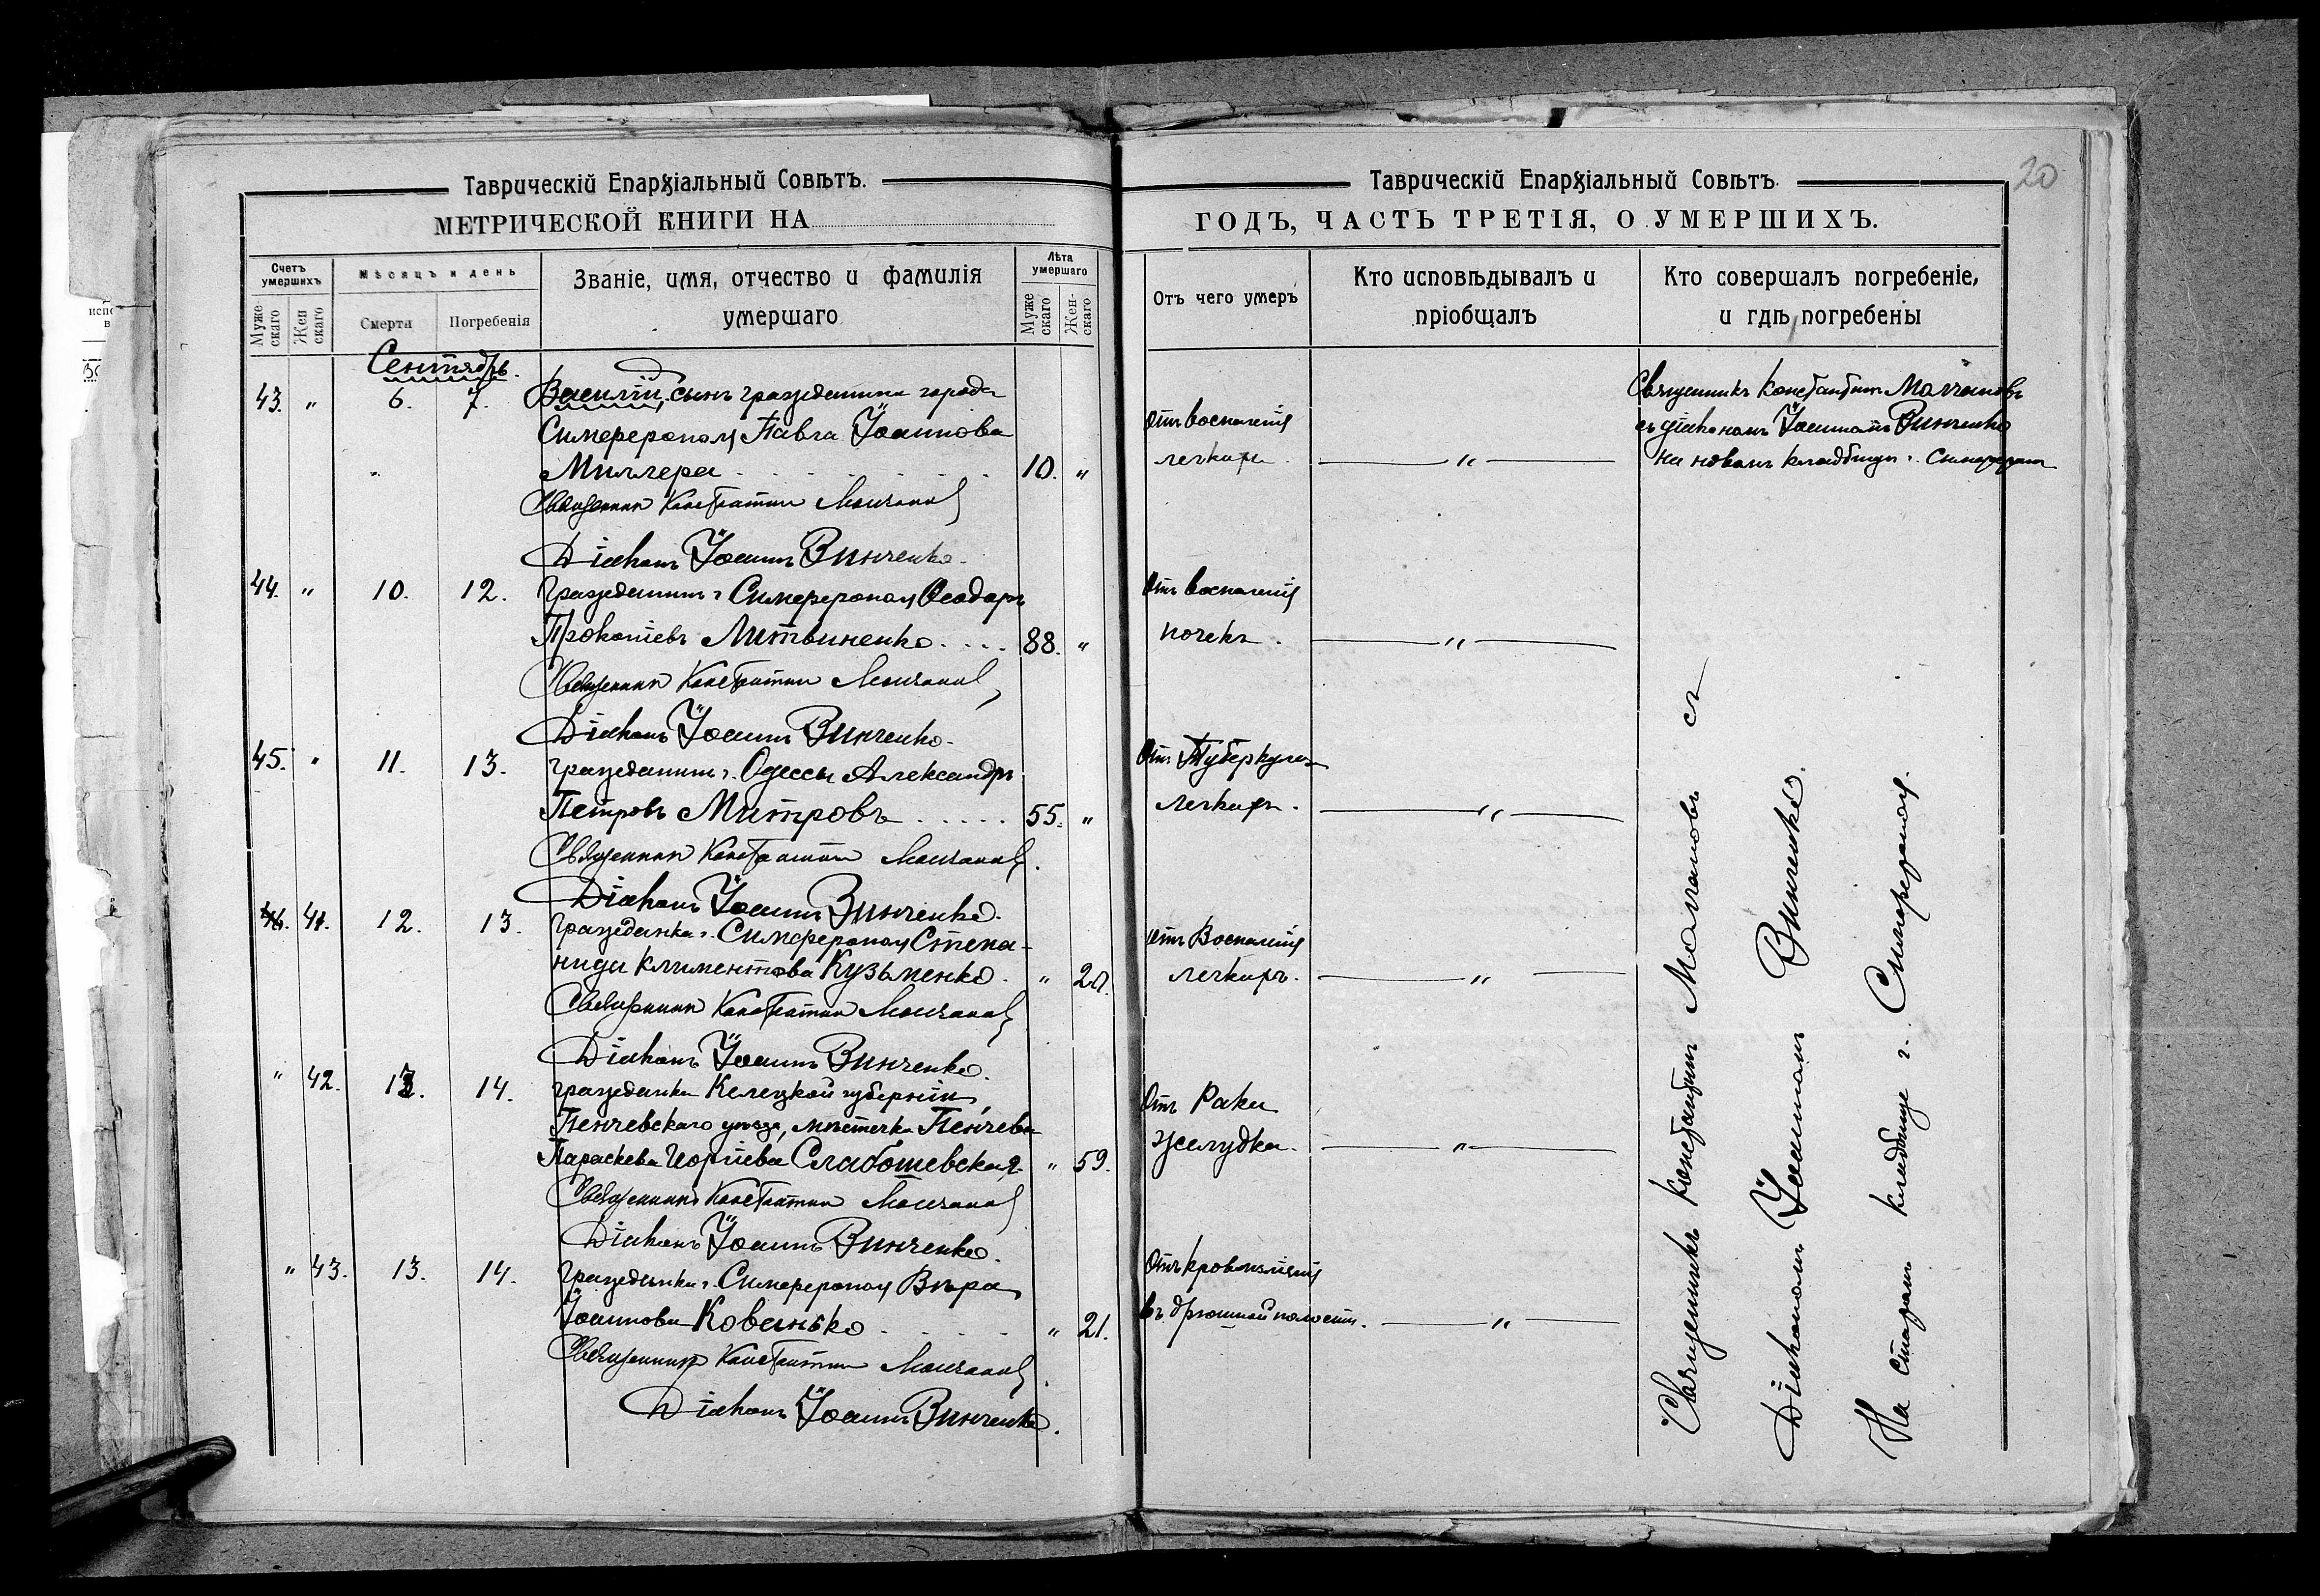 Таврическій Епархіальный Совѣтъ.
МЕТРИЧЕСКОЙ КНИГИ НА
Счетъ умершихъ
Муже скаго
Жен скаго
Мѣсяцъ и день
Смерти
Погребенія
Званіе, имя, отчество и фамилія
умершаго
Лѣта умершаго
Муже скаго
Жен- скаго
Сентябрь.
43. " 6. 7. Василій, сынъ гражданина города
Симферополя Павла Іоаннова
Миллера 10. "
Священникъ Константинъ Молчановъ
Діаконъ Іоаннъ Винченко.
44. " 10. 12. Гражданинъ г. Симферополя Ѳеодоръ
Прокопіевъ Литвиненко 88. "
Священникъ Константинъ Молчановъ
Діаконъ Іоаннъ Винченко.
45. " 11. 13. Гражданинъ г. Одессы Александръ
Петровъ Митровъ 55. "
Священникъ Константинъ Молчановъ
Діаконъ Іоаннъ Винченко.
41. 12. 13. Гражданка г. Симферополя Степа-
нида Климентова Кузьменко. "
Священникъ Константинъ Молчановъ
Діаконъ Іоаннъ Винченко.
" 42. 14. Гражданка Келецкой губерніи,
Пенчевскаго уѣзда, мѣстечка Пенчева
Параскева Слабошевская " 59.
Священникъ Константинъ Молчановъ
Діаконъ Іоаннъ Винченко.
" 43. 13. 14. Гражданка г. Симферополя Вѣра
Іоаннова Кованько " 21.
Священникъ Константинъ Молчановъ
Діаконъ Іоаннъ Винченко.
20
Таврическій Епархіальный Совѣтъ.
ГОДЪ, ЧАСТЬ ТРЕТІЯ, О УМЕРШИХЪ.
Отъ чего умеръ
Кто исповѣдывалъ и
пріобщалъ
Кто совершалъ погребеніе,
и гдѣ погребены
Отъ воспаленія
легкихъ "
Священникъ Константинъ Молчановъ
съ діакономъ Іоанномъ Винченко
на новомъ кладбищѣ г. Симферополя
Отъ воспаленія
почекъ. "
Отъ Туберкулеза
легкихъ. "
Отъ Воспаленія
легкихъ. "
Отъ Рака
желудка. "
Отъ кровоизліянія
въ брюшной полости. "
Священникъ Константинъ Молчановъ съ
Діакономъ Іоанномъ Винченко.
На старомъ кладбище г. Симферополя.